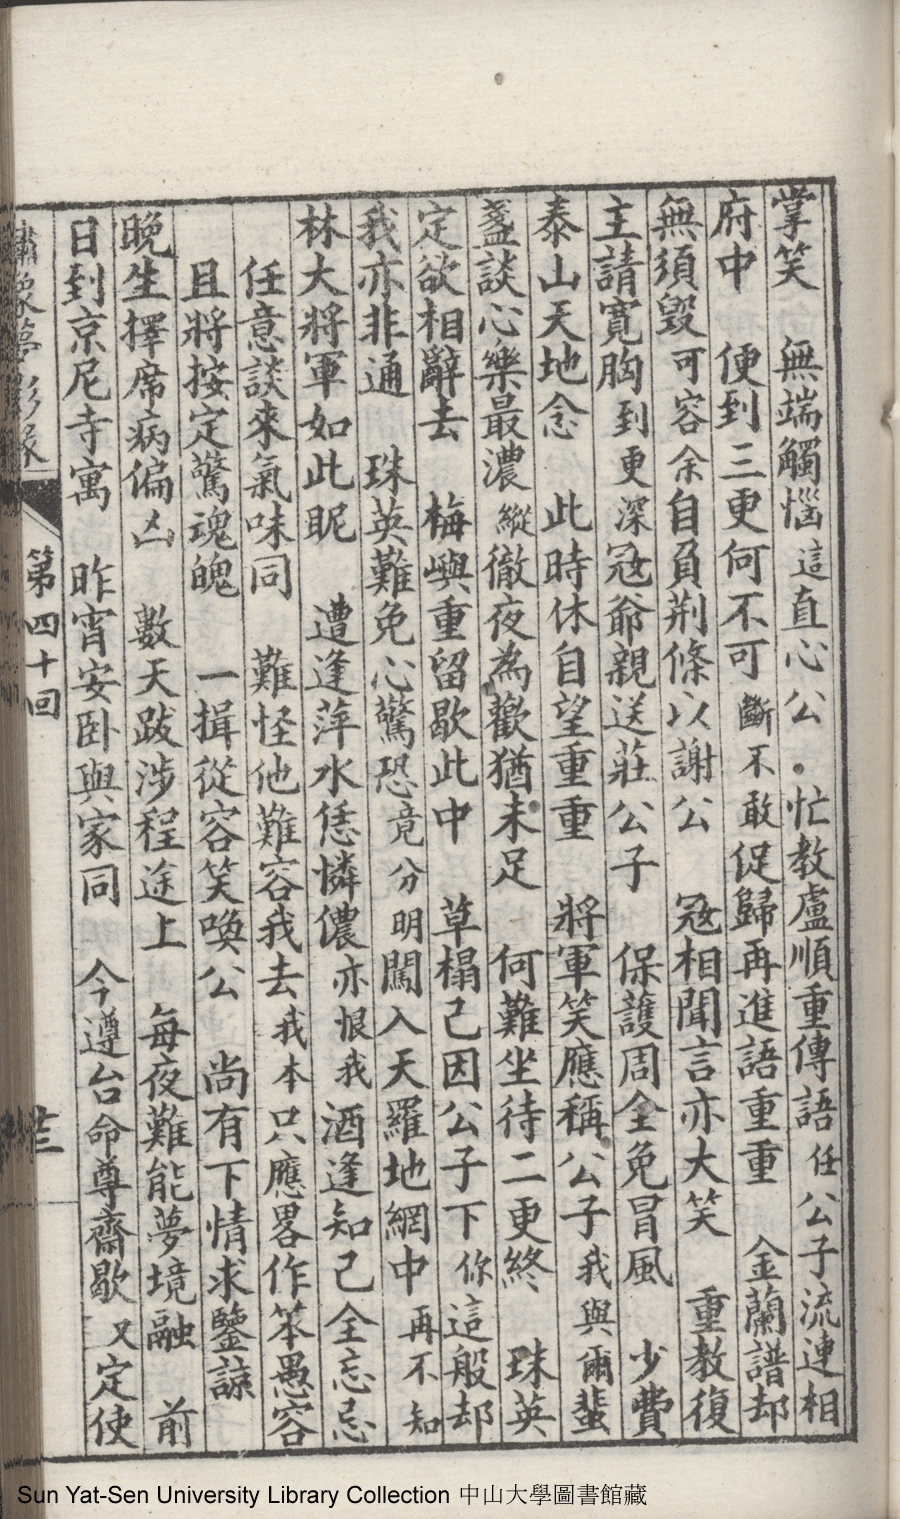 掌笑　無端觸惱這直心公　忙教盧順重傳語任公子流連相
府中　便到三更何不可斷不敢促歸再進語重重　金蘭譜却
無須毀可容余自負荆條以謝公　冦相聞言亦大笑　重教復
主請寛胸到更深冦爺親送莊公子　保護周全免冒風　少費
泰山天地念　此時休自望重重　將軍笑應稱公子我與爾蜚
盞談心樂最濃縱徹夜為歡猶未足　何難坐待二更終　珠英
定欲相辭去　梅嶼重留歇此中　草榻己因公子下你這般却
我亦非通　珠英難免心驚恐竟分明闖入天羅地網中再不知
林大將軍如此眤　遭逢萍水恁憐儂亦恨我酒逢知己全忘忌
任意談來氣味同　難怪他難容我去我本只應畧作笨愚容
且將按定驚魂魄　一揖從容笑喚公　尚有下情求鑒諒
晚生擇席病偏凶　數天跋涉程途上　每夜難能夢境融　前
日到京尼寺寓　昨宵安卧與家同　今遵台命尊齋歇又定使
繡像夢影緣　第四十回　廿三
Sun Yat-Sen University Library Collection 中山大學圖書館藏